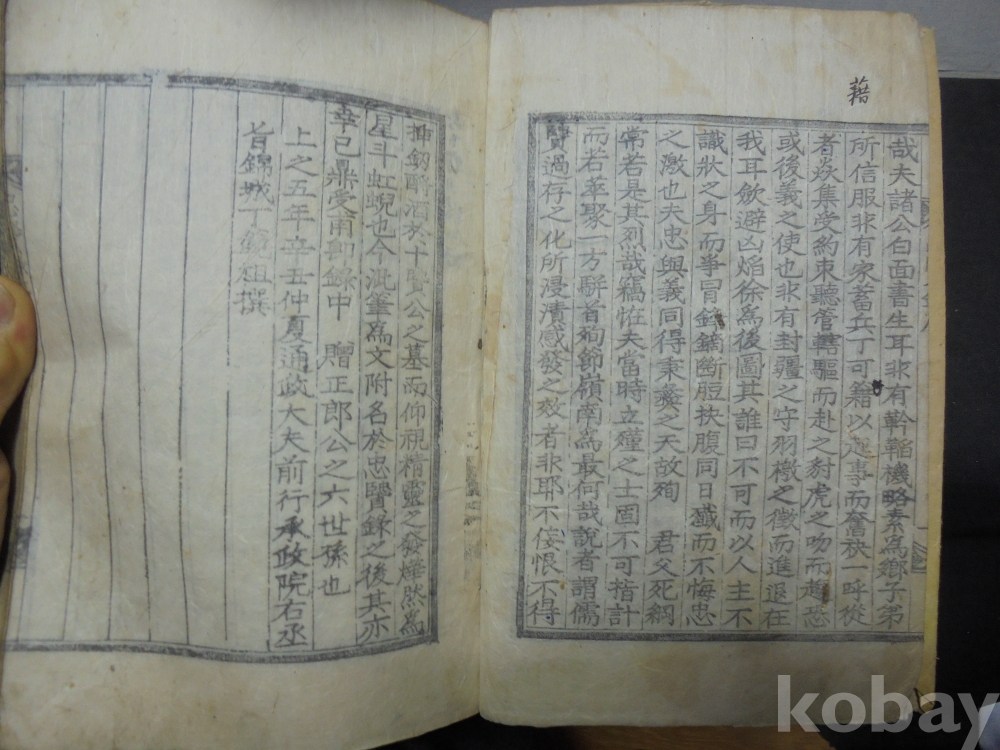 藉
哉夫諸公白面書生耳非有斡韜機略素爲鄕子弟
所信服非有家蓄兵丁可籍以起事而奮袂一呼從
者焱集受約束聽管轄驅而赴之豺虎之吻而趨恐
或後義之使也非有封疆之守羽檄之徵而進退在
我耳歛避凶焰徐爲後圖其誰曰不可而以人主不
識狀之身而爭冒鋒鏑斷脰抉腹同日殲而不悔忠
之激也夫忠與義同得秉彝之天故殉 君父死綱
常若是其烈哉竊恠夫當時立殣之士固不可楷計
而若萃聚一方騈首殉節嶺南爲最何哉說者謂儒
賢過存之化所浸漬感發之效者非耶不侫恨不得
抻劒酹酒於十賢公之墓而仰視精靈之發燁然爲
星斗虹蜺也今泚筆爲文附名於忠賢錄之後其亦
幸已鼎受甫卽錄中 贈正郞公之六世孫也
上之五年辛丑仲夏通政大夫前行承政院右丞
旨錦城丁範祖撰
kobay